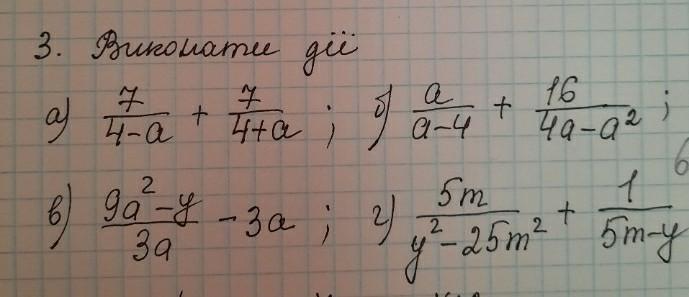 3. Виконати дії
а) 7/(4-a) + 7/(4+a) ; б) a/(a-4) + 16/(4a-a²) ;
в) (9a²-y)/3a - 3a ; г) 5m/(y²-25m²) + 1/(5m-y)